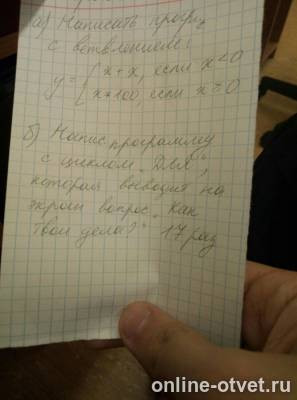 а) Написать прогр
с ветвлением:
y = { x + x, если x < 0
x * 100, если x ≥ 0
б) Напис программу
с циклом „Для“,
которая выводит на
экран вопрос „Как
твои дела?“ 17 раз
online-otvet.ru